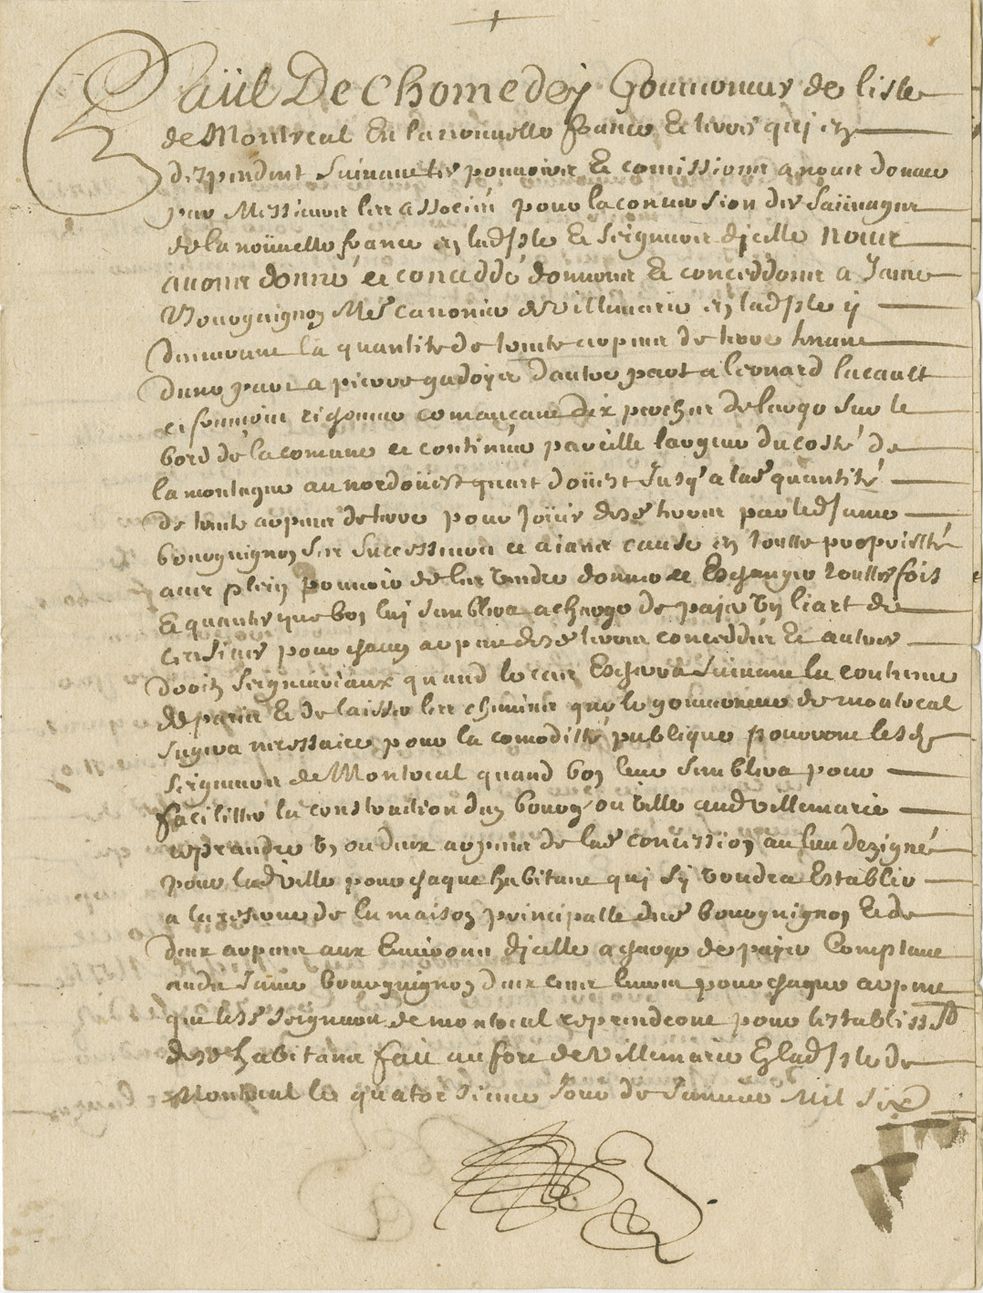 Paül De Chomedey Gouuerneur de lisle
de Montreal En la nouuelle france Et terres qui en
deppendent Suiuant les pouuoirs Et comissions a nous donnez
par Messieurs les associez pour la conuersion des Sauuages
de la nouuelle france en lad Isle Et Seigneurs dicelle nous
auons donné et conceddé donnons Et conceddons a Jaine
Bourguignon Me canonier de Villemarie en lad Isle y
demeurant la quantité de trente arpens de terre tenant
dune part a pierre gadoys dautre part a leonard lucault
et francois comancant dix perches de large sur le
bord de la comune et continuer pareille largeur du costé de
la montagne au nordouest quart douest Jusqà lad quantité
de trente arpens de terre pour Jouir desd terres par led Jaine
bourguignon Ses Successeurs et aians cause en toutte proprietté
auec plein pouuoir de les Vendre donner et Eschanger touttes fois
Et quantes que bon luy Semblera a charge de paier Un liart de
pour chacun arpent desd terres conceddées Et autres
droits Seigneuriaux quand le cas Escherra Suiuant la coutume
de paris Et de laisser les chemins que le gouuerneur de montreal
Jugera necessaires pour la comoditté publique pourront lesd
Seigneurs de Montreal quand bon leur Semblera pour
facilitter la construction dun bourg ou Ville aud Villemarie
reprandre Un ou deux arpens de lad concession au lieu dezigné
pour lad Ville pour chaque habitant qui sy Vendra Establir
a la reserue de la maison principalle dud bourguignon Et de
deux arpens aux Enuirons dicelle a charge de paier Comptant
aud Jaine bourguignon deux cens liures pour chaque arpent
que lesd Seigneurs de montreal reprendront pour lestablissmt
desd habitans fait au fort de Villemarie En lad Isle de
Montreal le quatorsieme Jour de Januier Mil Six